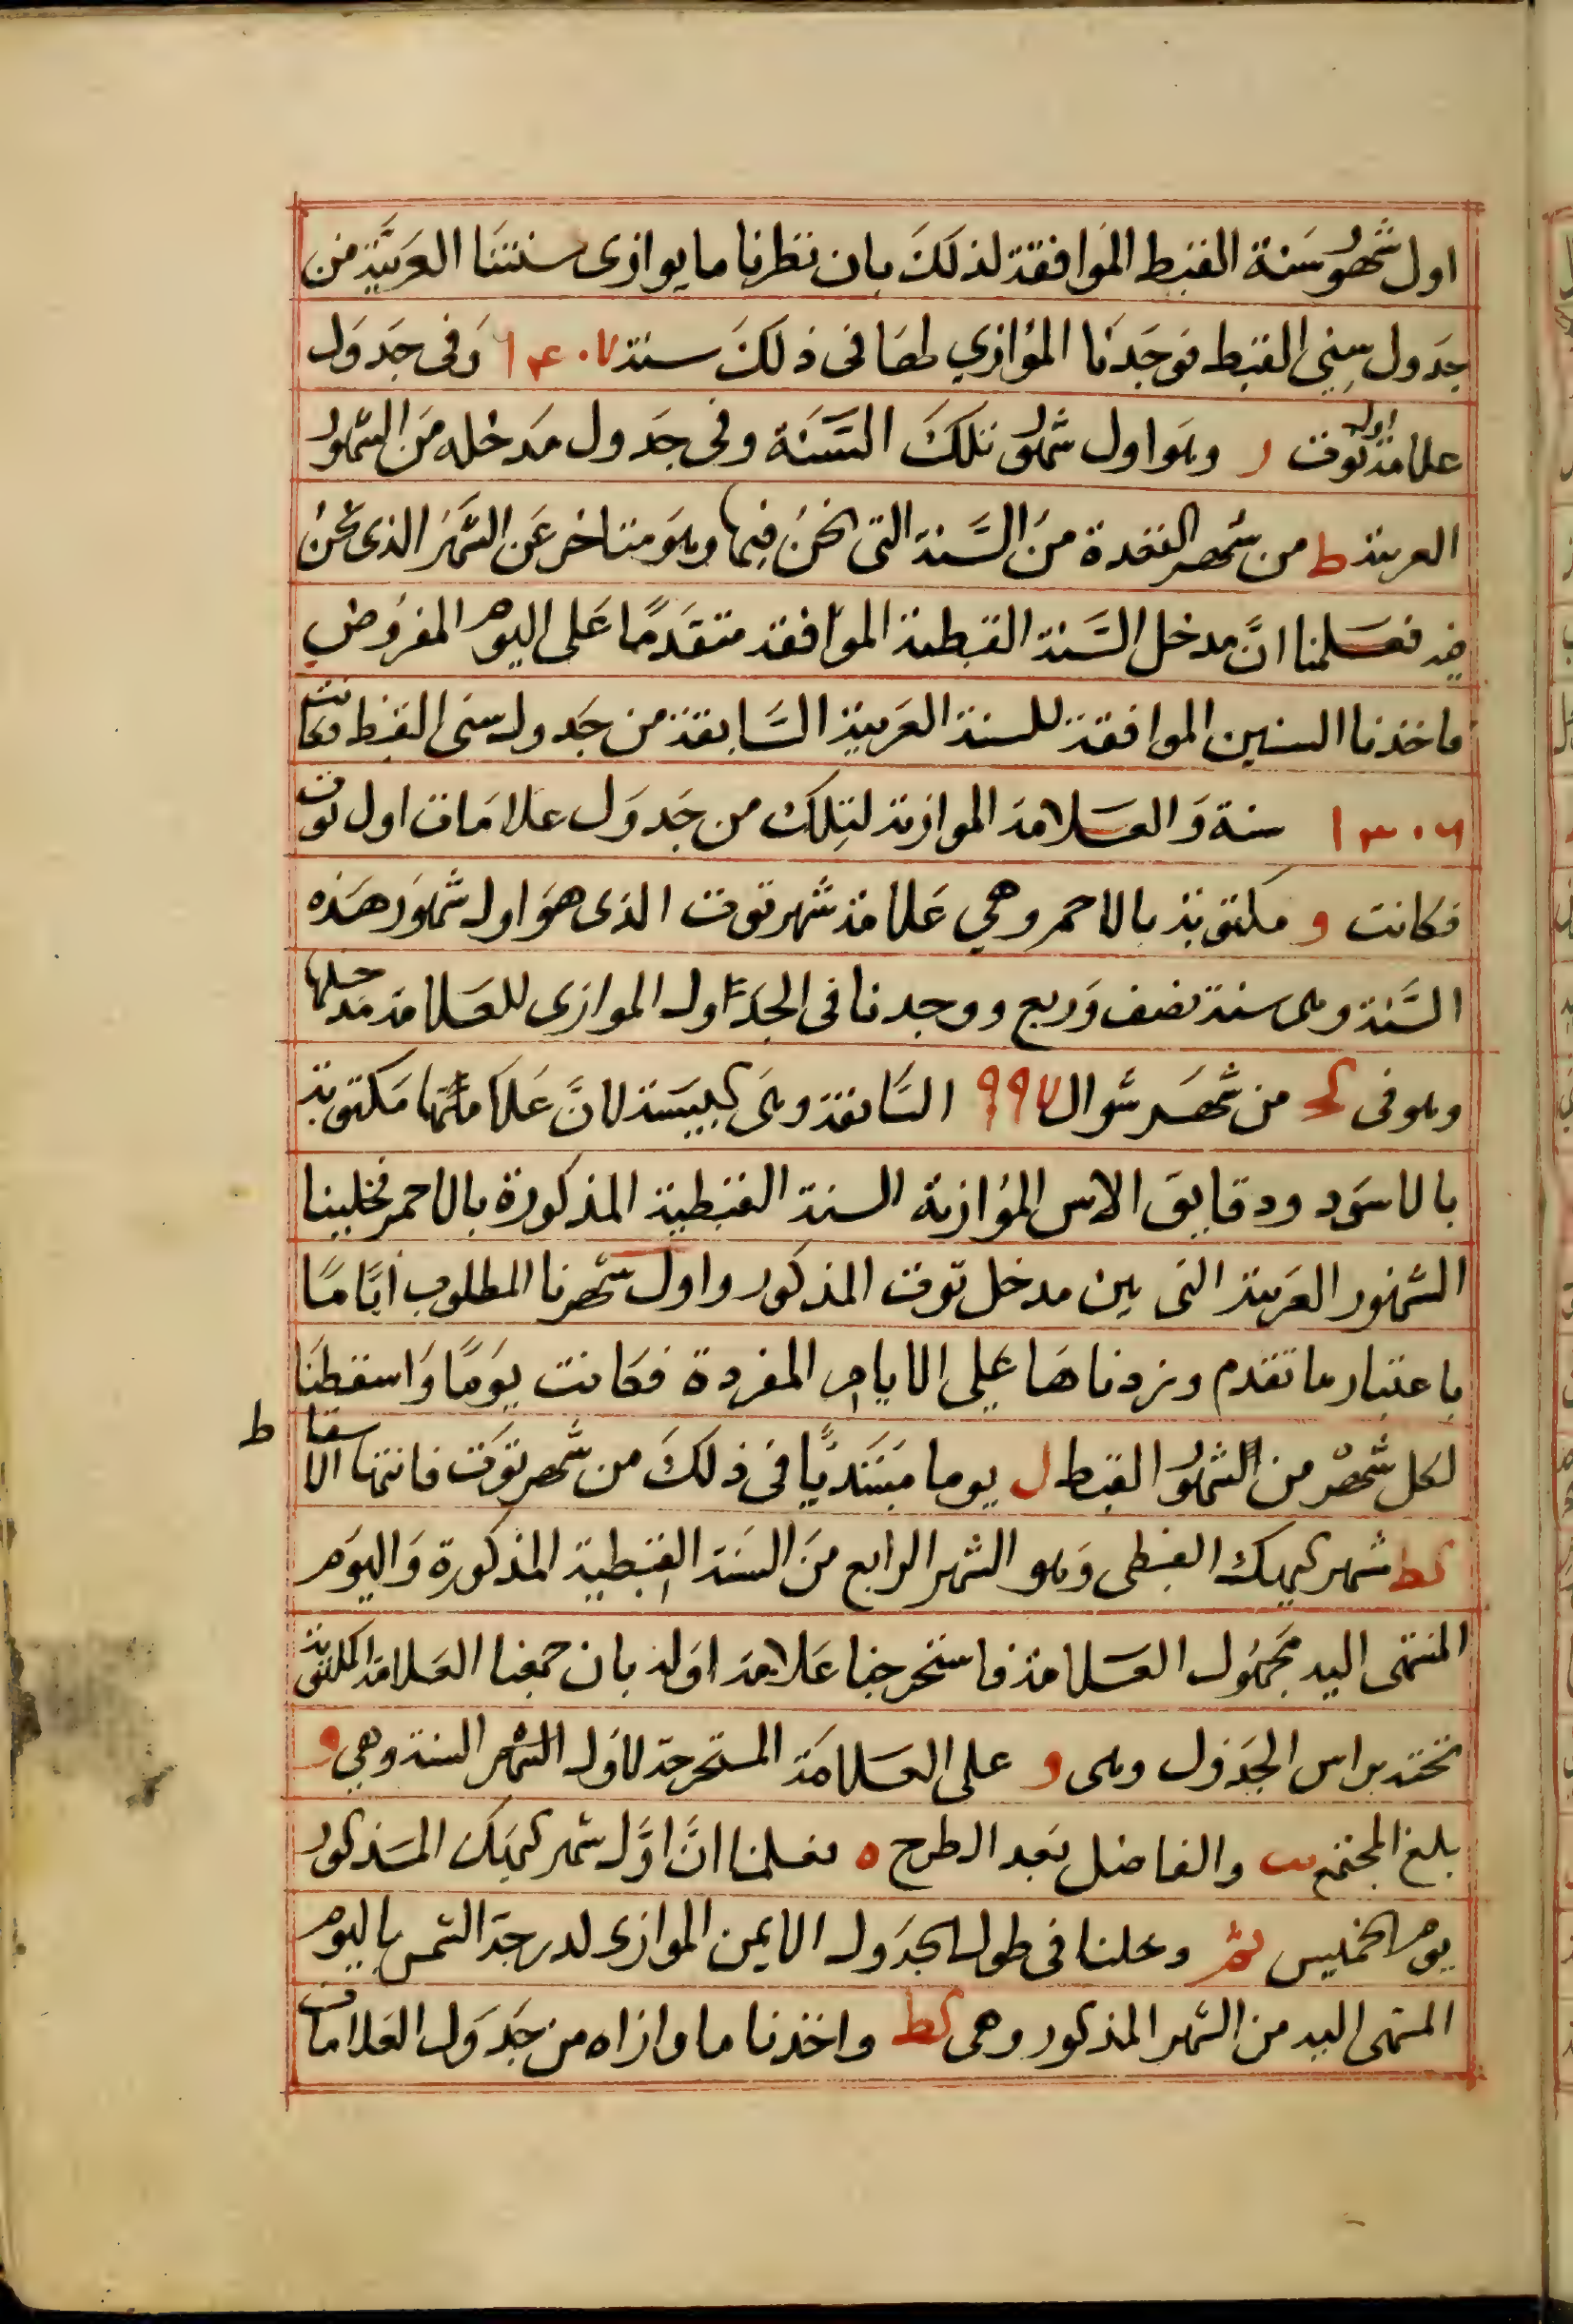 اول شهور سَنة القبط الموافقة لذلكَ بان نظرنا ما يوازى سنتنَا العَربيَّة من
جدَول سِني القبط فوجَدنا الموُازي لها فى ذلكَ سنة ١٣٠٧ وَفى جَدوَل
علامة اول توت ر وهَو اول شهور تلكَ السَّنَة وفى جدَول مَدخله مَن الشهور
العربية ط من شهر القعدة منَ السَّنة التى نحنُ فيها وهوَ متاخر عَن الشَّهرَ الذى نحنُ
فيه فعَلمنا انَّ مدخل السَّنة القبطية الموافقة متقدمًا عَلى اليوم المفروُض
فاخذنا السنين الموافقة للسنة العَربية السَّابقة من جَدول سنى القبط فكانت
١٣٠٦ سنة وَالعَلامة الموازية لتِلك من جَدوَل علامَات اول توت
فكانت و مكتوبة بالاحمر وهي عَلامة شهر توت الذى هوَ اول شهَور هَذه
السَّنة وهى سنة نصف وَربع ووجدنا فى الجدَاول الموازى للعَلامة مَدخلها
وهو فى كح من شهَر شوال ٩٩٧ السَّابقة وهىَ كبيسَة لانَّ عَلامتها مَكتوبة
بالاسوَد ودقايق الاس الموُازية السنة القبطية المذكورة بالاحمر فخلينا
الشهور العَربية التى بين مدخل توت المذكور واول شهرنا المطلوب ايَّامًا
باعتبار ما تقدم وزدناهَا عَلي الايام المفردة فكانت يوَمًا وَاسقطنَا
لكل شهر من الشهور القبط ل يوما مبتَديًا فى ذلكَ من شهر توَت فانتها الاسقاط
كط شهر كيهك القبطى وَهو الشهر الرابع منَ السَنة القبطية المذكورة وَاليوَم
المنتهى اليه مجَهوُل العَلامة فاستخرجنا عَلامة اوَله بان جمعنا العَلامة المكتوبة
تحته براس الجَدوَل وهى و على العَلامَة المستخرجة لاوَل الشهر السنة وهي و
بلغ المجتمع يب والفاضل بَعد الطرح ه فعلمنا انَّ اوَّل شهر كيهَك المذكور
يوم الخميس ثم وعلنا فى طول الجدَول الايمن الموازى لدرجة الشمس باليوم
المنتهى اليه من الشهر المذكور وهى كط واخذنا ما وازاه من جَدوَل العَلامات